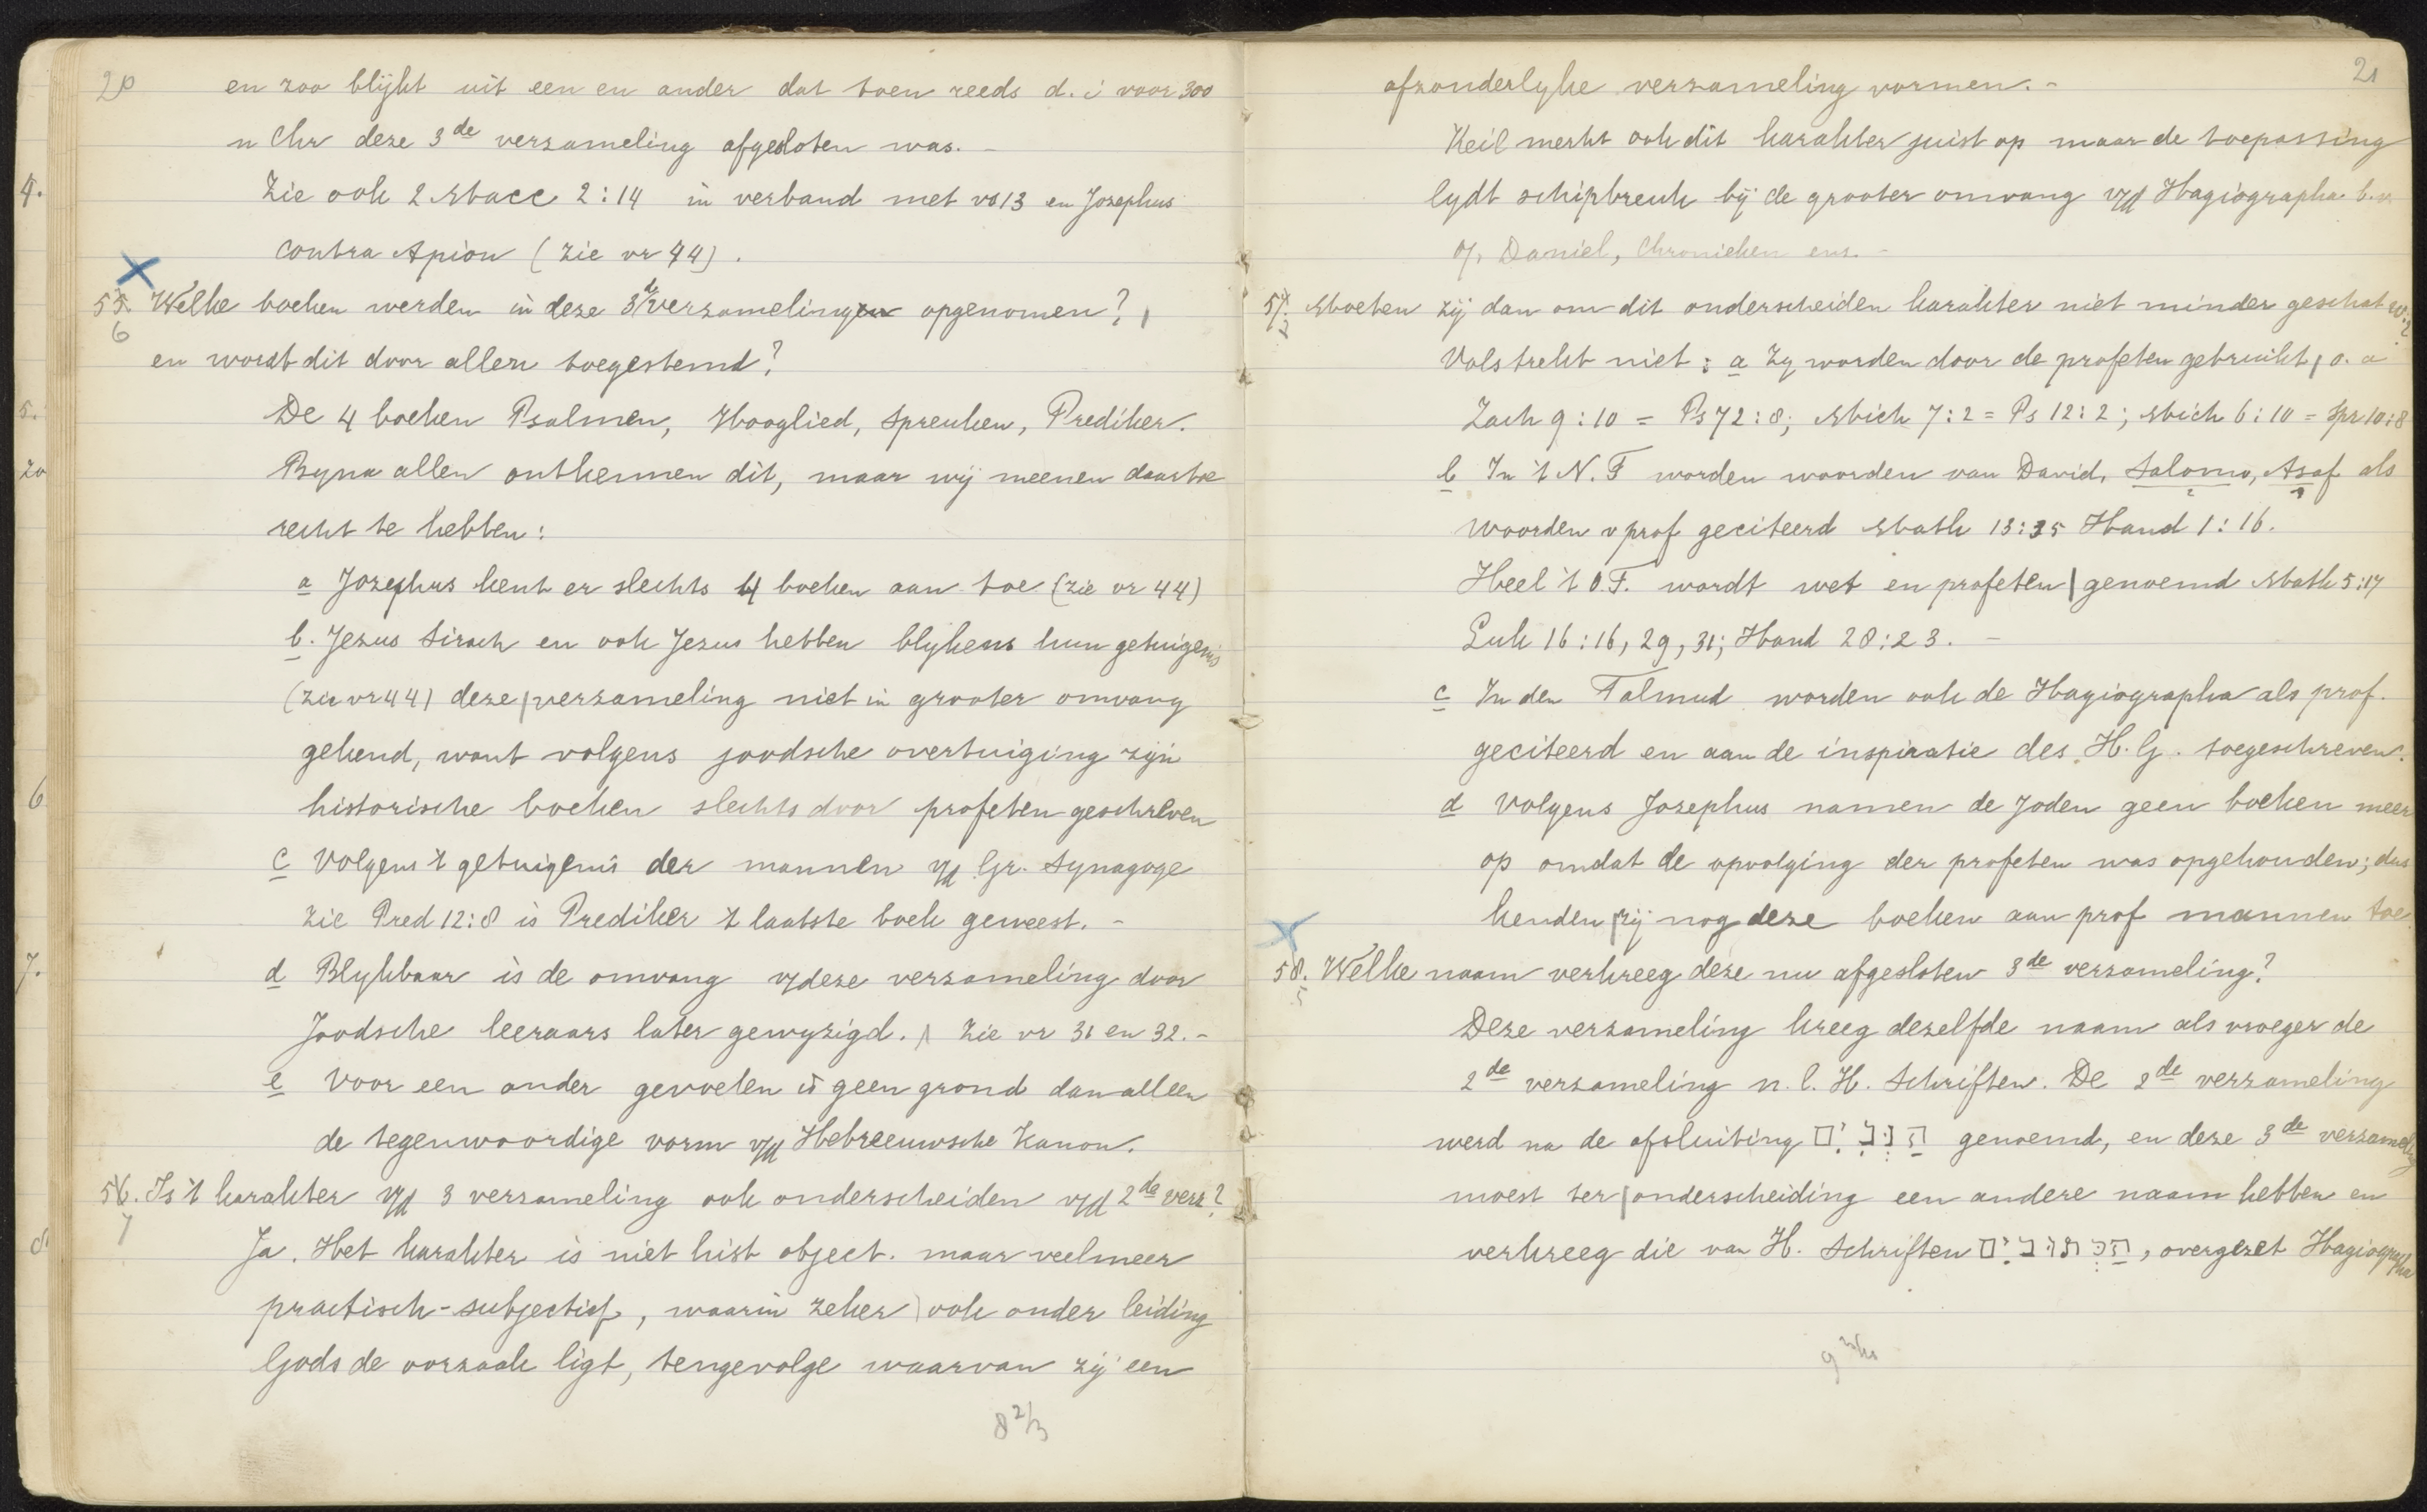 20
en zoo blijkt uit een en ander dat toen reeds d. i voor 300
n Chr deze 3de verzameling afgesloten was. -
Zie ook 2 Macc 2:14 in verband met vs 13 en Josephus
contra Apion (zie vr 44).
55. Welke boeken werden in deze 3de verzamelingen opgenomen?
6
en wordt dit door allen toegestemd?
De 4 boeken Psalmen, Hooglied, Spreuken, Prediker.
Byna allen ontkennen dit, maar wij meenen daartoe
recht te hebben:
a Josephus kent er slechts 4 boeken aan toe (zie vr 44)
b. Jezus Sirach en ook Jezus hebben blykens hun getuigenis
(zie vr 44) deze verzameling niet in grooter omvang
gekend, want volgens joodsche overtuiging zijn
historische boeken slechts door profeten geschreven
c Volgens 't getuigenis der mannen v/d Gr. Synagoge
zie Pred 12:8 is Prediker 't laatste boek geweest. -
d Blykbaar is de omvang v/deze verzameling door
Joodsche leeraars later gewyzigd. Zie vr 31 en 32. -
e Voor een ander gevoelen is geen grond dan alleen
de tegenwoordige vorm v/d Hebreeuwsche Kanon.
56. Is 't karakter v/d 3 verzameling ook onderscheiden v/d 2de verz?
7
Ja. Het karakter is niet hist object. maar veelmeer
practisch-subjectief, waarin zeker ook onder leiding
Gods de oorzaak ligt, tengevolge waarvan zij een
8 2/3
21
afzonderlyke verzameling vormen. -
Keil merkt ook dit karakter juist op maar de toepassing
lydt schipbreuk bij de grooter omvang v/d Hagiographa b.v
Daniel, Chronieken enz. -
57. Moeten zij dan om dit onderscheiden karakter niet minder geschat w.?
Volstrekt niet: a Zy worden door de profeten gebruikt, o. a
Zach 9:10 = Ps 72:8; Mich 7:2 = Ps 12:2; Mich 6:10 = Spr 10:8
b In 't N. T worden woorden van David, Salomo, Asaf als
woorden v prof geciteerd Math 13:35 Hand 1:16.
Heel 't O.T. wordt wet en profeten genoemd Math 5:17
Luk 16:16, 29, 31; Hand 28:23. -
c In den Talmud worden ook de Hagiographa als prof.
geciteerd en aan de inspiratie des H. G. toegeschreven.
d Volgens Josephus namen de Joden geen boeken meer
op omdat de opvolging der profeten was opgehouden; dus
kenden zij nog deze boeken aan prof mannen toe
58. Welke naam verkreeg deze nu afgesloten 3de verzameling?
Deze verzameling kreeg dezelfde naam als vroeger de
2de verzameling n. l. H. Schriften. De 2de verzameling
werd na de afsluiting genoemd, en deze 3de verzameling
moest ter onderscheiding een andere naam hebben en
verkreeg die van H. Schriften הַכְּתוּבִים, overgezet Hagiographa